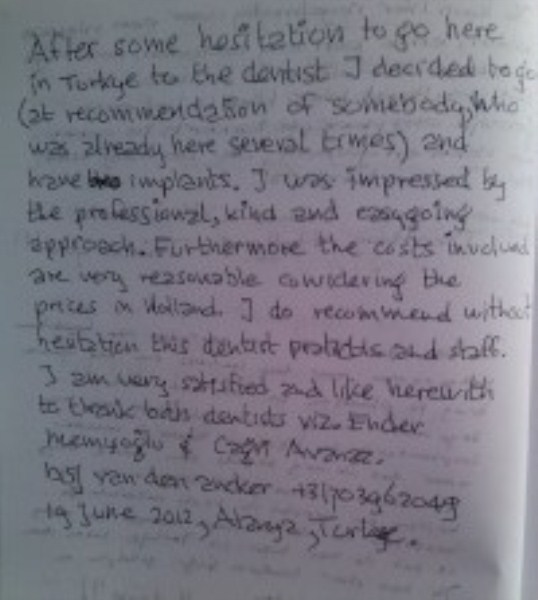 After some hesitation to go here
in Turkye to the dentist I decided to go
(at recommendation of somebody, who
was already here several times) and
have implants. I was impressed by
the professional, kind and easygoing
approach. Furthermore the costs involved
are very reasonable considering the
prices in Holland. I do recommend without
hesitation this dentist and staff.
I am very satisfied and like herewith
to thank both dentists viz. Ender
&
van den
19 June 2012, Alanya, Turkye.